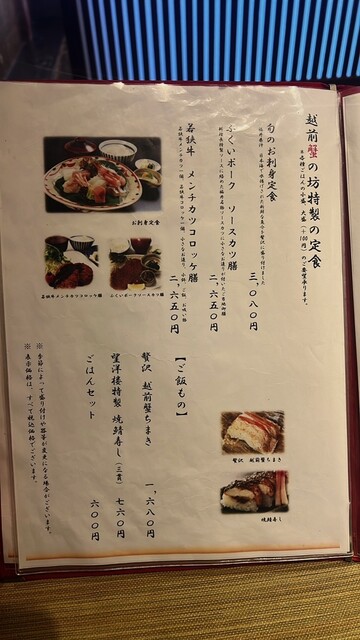 越前蟹の坊特製の定食
※各種ごはんの小盛、大盛（＋100円）のご用意承ります。
旬のお刺身定食
三、〇八〇円
ふくいポーク　ソースカツ膳
二、六五〇円
若狭牛　メンチカツコロッケ膳
二、六五〇円
お刺身定食
若狭牛メンチカツコロッケ膳
ふくいポークソースカツ膳
【ご飯もの】
贅沢　越前蟹ちまき
一、一六八〇円
望洋楼特製　焼鯖寿し（三貫）
七六〇円
ごはんセット
六〇〇円
※季節によって盛り付けや器等が変更になる場合がございます。
※表示価格は、すべて税込価格でございます。
贅沢　越前蟹ちまき
焼鯖寿し